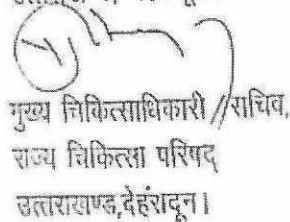 मुख्य चिकित्साधिकारी // सचिव,
राज्य चिकित्सा परिषद्
उत्तराखण्ड,देहरादून।